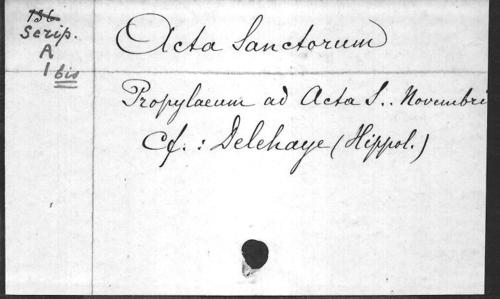 136
Scrip.
A
1 bis
Acta Sanctorum
Propylaeum ad Acta S.. Novembri
Cf. : Delehaye (Hippol.)